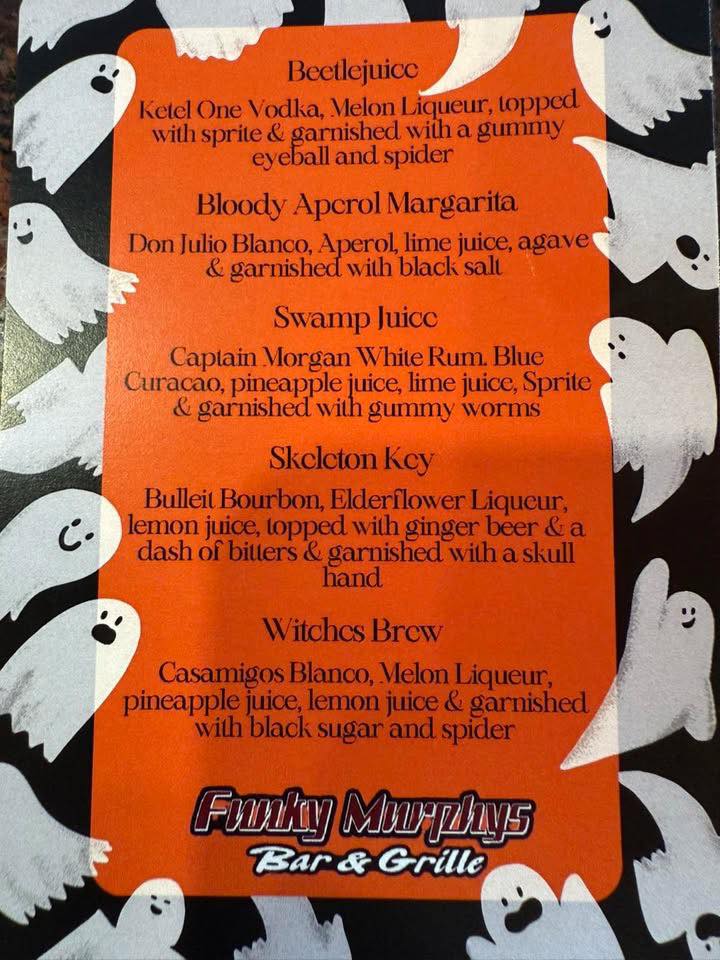 Beetlejuice
Ketel One Vodka, Melon Liqueur, topped
with sprite & garnished with a gummy
eyeball and spider
Bloody Aperol Margarita
Don Julio Blanco, Aperol, lime juice, agave
& garnished with black salt
Swamp Juice
Captain Morgan White Rum. Blue
Curacao, pineapple juice, lime juice, Sprite
& garnished with gummy worms
Skeleton Key
Bulleit Bourbon, Elderflower Liqueur,
lemon juice, topped with ginger beer & a
dash of bitters & garnished with a skull
hand
Witches Brew
Casamigos Blanco, Melon Liqueur,
pineapple juice, lemon juice & garnished
with black sugar and spider
Funky Murphys
Bar & Grille